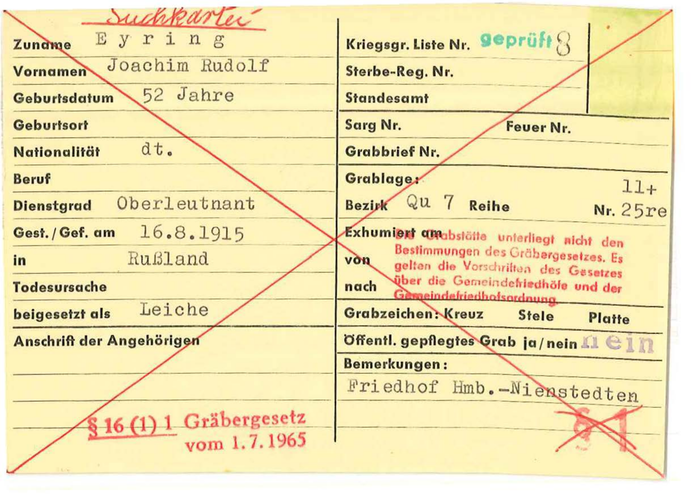 Suchkartei
Zuname Eyring
Vornamen Joachim Rudolf
Geburtsdatum 52 Jahre
Geburtsort
Nationalität dt.
Beruf
Dienstgrad Oberleutnant
Gest./Gef. am 16.8.1915
in Rußland
Todesursache
beigesetzt als Leiche
Anschrift der Angehörigen
§ 16 (1) 1 Gräbergesetz
vom 1.7.1965
Kriegsgr. Liste Nr. geprüft 8
Sterbe-Reg. Nr.
Standesamt
Sarg Nr. Feuer Nr.
Grabbrief Nr.
Grablage:
11+
Bezirk Qu 7 Reihe Nr. 25re
Exhumiert am
von
nach
Die Grabstätte unterliegt nicht den
Bestimmungen des Gräbergesetzes. Es
gelten die Vorschriften des Gesetzes
über die Gemeindefriedhöfe und der
Gemeindefriedhofsordnung.
Grabzeichen: Kreuz Stele Platte
Öffentl. gepflegtes Grab ja/nein nein
Bemerkungen:
Friedhof Hmb.-Nienstedten
§ 1